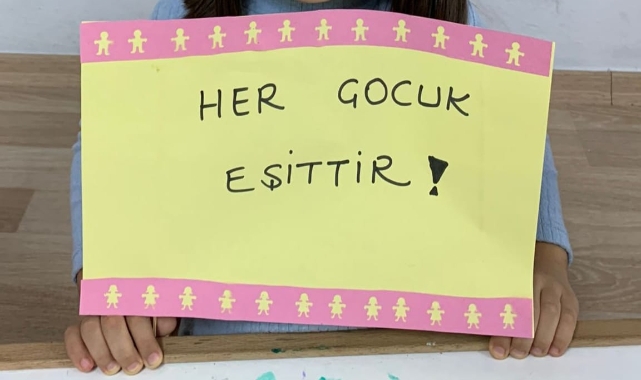 HER GOCUK
EŞİTTİR!